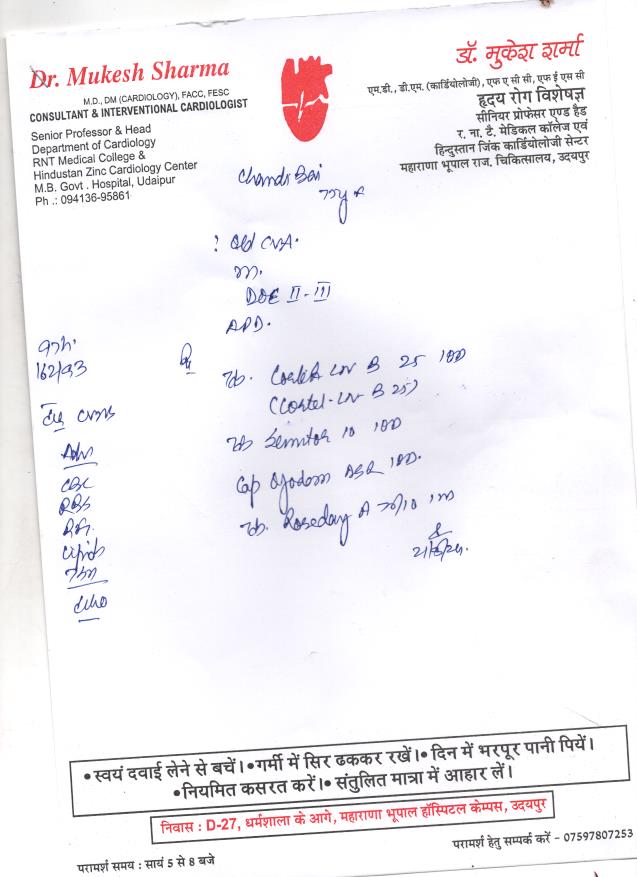 Dr. Mukesh Sharma
M.D., DM (CARDIOLOGY), FACC, FESC
CONSULTANT & INTERVENTIONAL CARDIOLOGIST
Senior Professor & Head
Department of Cardiology
RNT Medical College &
Hindustan Zinc Cardiology Center
M.B. Govt . Hospital, Udaipur
Ph .: 094136-95861
डॉ. मुकेश शर्मा
एम.डी., डी.एम. (कार्डियोलॉजी), एफ ए सी सी, एफ ई एस सी
हृदय रोग विशेषज्ञ
सीनियर प्रोफेसर एण्ड हैड
र. ना. टै. मेडिकल कॉलेज एवं
हिन्दुस्तान जिंक कार्डियोलोजी सेन्टर
महाराणा भूपाल राज. चिकित्सालय, उदयपुर
? Old CVA.
DOE II - III
APD.
162/93
Adv
CBC
RBS
RFT
Lipid
TSH
Echo
Tab. LN B 25 1OD
-LN B 25)
10 1OD
Cap DSR 1OD.
Tab. Roseday A
• स्वयं दवाई लेने से बचें। • गर्मी में सिर ढककर रखें। • दिन में भरपूर पानी पियें।
• नियमित कसरत करें। • संतुलित मात्रा में आहार लें।
निवास : D-27, धर्मशाला के आगे, महाराणा भूपाल हॉस्पिटल केम्पस, उदयपुर
परामर्श समय : सायं 5 से 8 बजे
परामर्श हेतु सम्पर्क करें - 07597807253